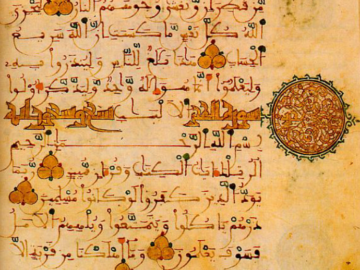 من قطران وتغشى وجوههم النار ليجزي
الله كل نفس ما كسبت إن الله سريع
الحساب هذا بلغ للناس ولينذروا به
وليعلموا أنما هو إله وحد وليذكر أولوا
سورة الحجر الألبب تسع وتسعون آية
بسم الله الرحمن الرحيم
الر تلك ءايت الكتب وقرءان مبين ربما
يود الذين كفروا لو كانوا مسلمين
ذرهم ياكلوا ويتمتعوا ويلههم الأمل
فسوف يعلمون وما أهلكنا من قرية إلا